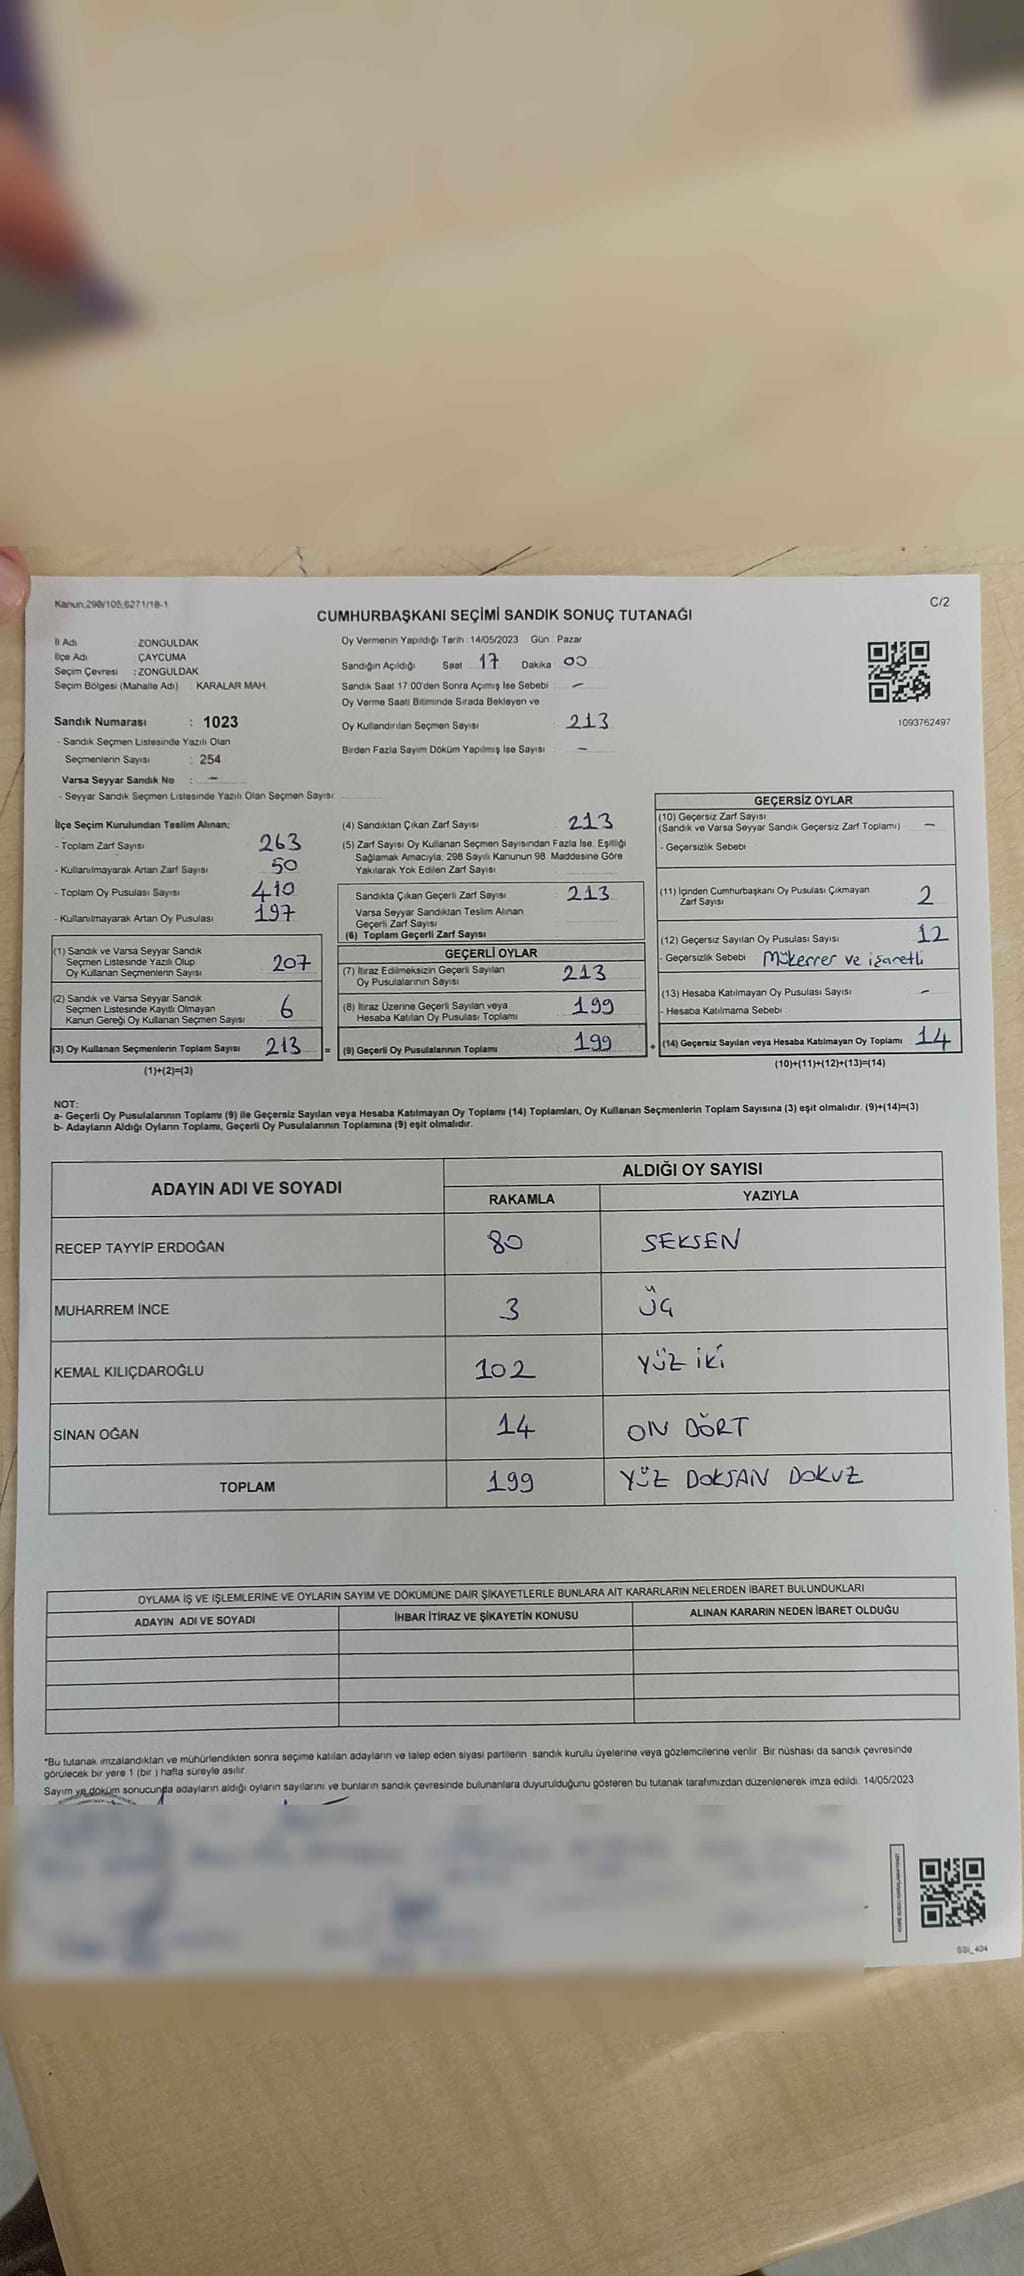 Kanun;298/105,6271/18-1
C/2
CUMHURBAŞKANI SEÇİMİ SANDIK SONUÇ TUTANAĞI
İl Adı : ZONGULDAK
İlçe Adı : ÇAYCUMA
Seçim Çevresi : ZONGULDAK
Seçim Bölgesi (Mahalle Adı) : KARALAR MAH.
Sandık Numarası : 1023
- Sandık Seçmen Listesinde Yazılı Olan
Seçmenlerin Sayısı : 254
Varsa Seyyar Sandık No : -
- Seyyar Sandık Seçmen Listesinde Yazılı Olan Seçmen Sayısı:
Oy Vermenin Yapıldığı Tarih : 14/05/2023 Gün : Pazar
Sandığın Açıldığı Saat 17 Dakika 00
Sandık Saat 17:00'den Sonra Açımış İse Sebebi : -
Oy Verme Saati Bitiminde Sırada Bekleyen ve
Oy Kullandırılan Seçmen Sayısı : 213
Birden Fazla Sayım Döküm Yapılmış İse Sayısı : -
1093762497
İlçe Seçim Kurulundan Teslim Alınan;
- Toplam Zarf Sayısı 263
- Kullanılmayarak Artan Zarf Sayısı 50
- Toplam Oy Pusulası Sayısı 410
- Kullanılmayarak Artan Oy Pusulası 197
(1) Sandık ve Varsa Seyyar Sandık
Seçmen Listesinde Yazılı Olup
Oy Kullanan Seçmenlerin Sayısı 207
(2) Sandık ve Varsa Seyyar Sandık
Seçmen Listesinde Kayıtlı Olmayan
Kanun Gereği Oy Kullanan Seçmen Sayısı 6
(3) Oy Kullanan Seçmenlerin Toplam Sayısı 213 =
(1)+(2)=(3)
(4) Sandıktan Çıkan Zarf Sayısı : 213
(5) Zarf Sayısı Oy Kullanan Seçmen Sayısından Fazla İse, Eşitliği
Sağlamak Amacıyla; 298 Sayılı Kanunun 98. Maddesine Göre
Yakılarak Yok Edilen Zarf Sayısı
Sandıkta Çıkan Geçerli Zarf Sayısı : 213
Varsa Seyyar Sandıktan Teslim Alınan
Geçerli Zarf Sayısı
(6) Toplam Geçerli Zarf Sayısı
GEÇERLİ OYLAR
(7) İtiraz Edilmeksizin Geçerli Sayılan
Oy Pusulalarının Sayısı 213
(8) İtiraz Üzerine Geçerli Sayılan veya
Hesaba Katılan Oy Pusulası Toplamı 199
(9) Geçerli Oy Pusulalarının Toplamı 199 +
GEÇERSİZ OYLAR
(10) Geçersiz Zarf Sayısı
(Sandık ve Varsa Seyyar Sandık Geçersiz Zarf Toplamı) -
- Geçersizlik Sebebi
(11) İçinden Cumhurbaşkanı Oy Pusulası Çıkmayan
Zarf Sayısı 2
(12) Geçersiz Sayılan Oy Pusulası Sayısı 12
- Geçersizlik Sebebi Mükerrer ve işaretli
(13) Hesaba Katılmayan Oy Pusulası Sayısı -
- Hesaba Katılmama Sebebi :
(14) Geçersiz Sayılan veya Hesaba Katılmayan Oy Toplamı 14
(10)+(11)+(12)+(13)=(14)
NOT:
a- Geçerli Oy Pusulalarının Toplamı (9) ile Geçersiz Sayılan veya Hesaba Katılmayan Oy Toplamı (14) Toplamları, Oy Kullanan Seçmenlerin Toplam Sayısına (3) eşit olmalıdır. (9)+(14)=(3)
b- Adayların Aldığı Oyların Toplamı, Geçerli Oy Pusulalarının Toplamına (9) eşit olmalıdır.
ADAYIN ADI VE SOYADI
ALDIĞI OY SAYISI
RAKAMLA YAZIYLA
RECEP TAYYİP ERDOĞAN 80 SEKSEN
MUHARREM İNCE 3 ÜÇ
KEMAL KILIÇDAROĞLU 102 YÜZ İKİ
SİNAN OĞAN 14 ON DÖRT
TOPLAM 199 YÜZ DOKSAN DOKUZ
OYLAMA İŞ VE İŞLEMLERİNE VE OYLARIN SAYIM VE DÖKÜMÜNE DAİR ŞİKAYETLERLE BUNLARA AİT KARARLARIN NELERDEN İBARET BULUNDUKLARI
ADAYIN ADI VE SOYADI İHBAR İTİRAZ VE ŞİKAYETİN KONUSU ALINAN KARARIN NEDEN İBARET OLDUĞU
*Bu tutanak imzalandıktan ve mühürlendikten sonra seçime katılan adayların ve talep eden siyasi partilerin sandık kurulu üyelerine veya gözlemcilerine verilir. Bir nüshası da sandık çevresinde
görülecek bir yere 1 (bir ) hafta süreyle asılır.
Sayım ve döküm sonucunda adayların aldığı oyların sayılarını ve bunların sandık çevresinde bulunanlara duyurulduğunu gösteren bu tutanak tarafımızdan düzenlenerek imza edildi. 14/05/2023
SSI_404